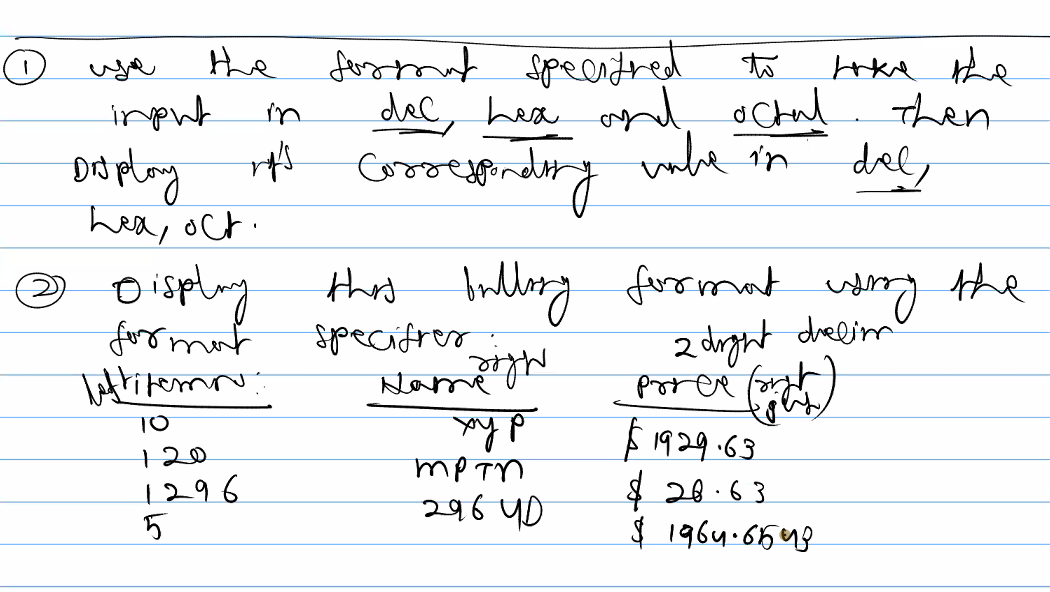 ① use the format specified to take the
input in dec, hex and octal. Then
Display it's corresponding value in dec,
hex, oct.
② Display this billing format using the
format specifier: 2 digit decim
right
left item no: Name Price (right
10 xyp $ 1929.63
120 mptn
1296 296 YD $ 28.63
5 $ 1964.6543